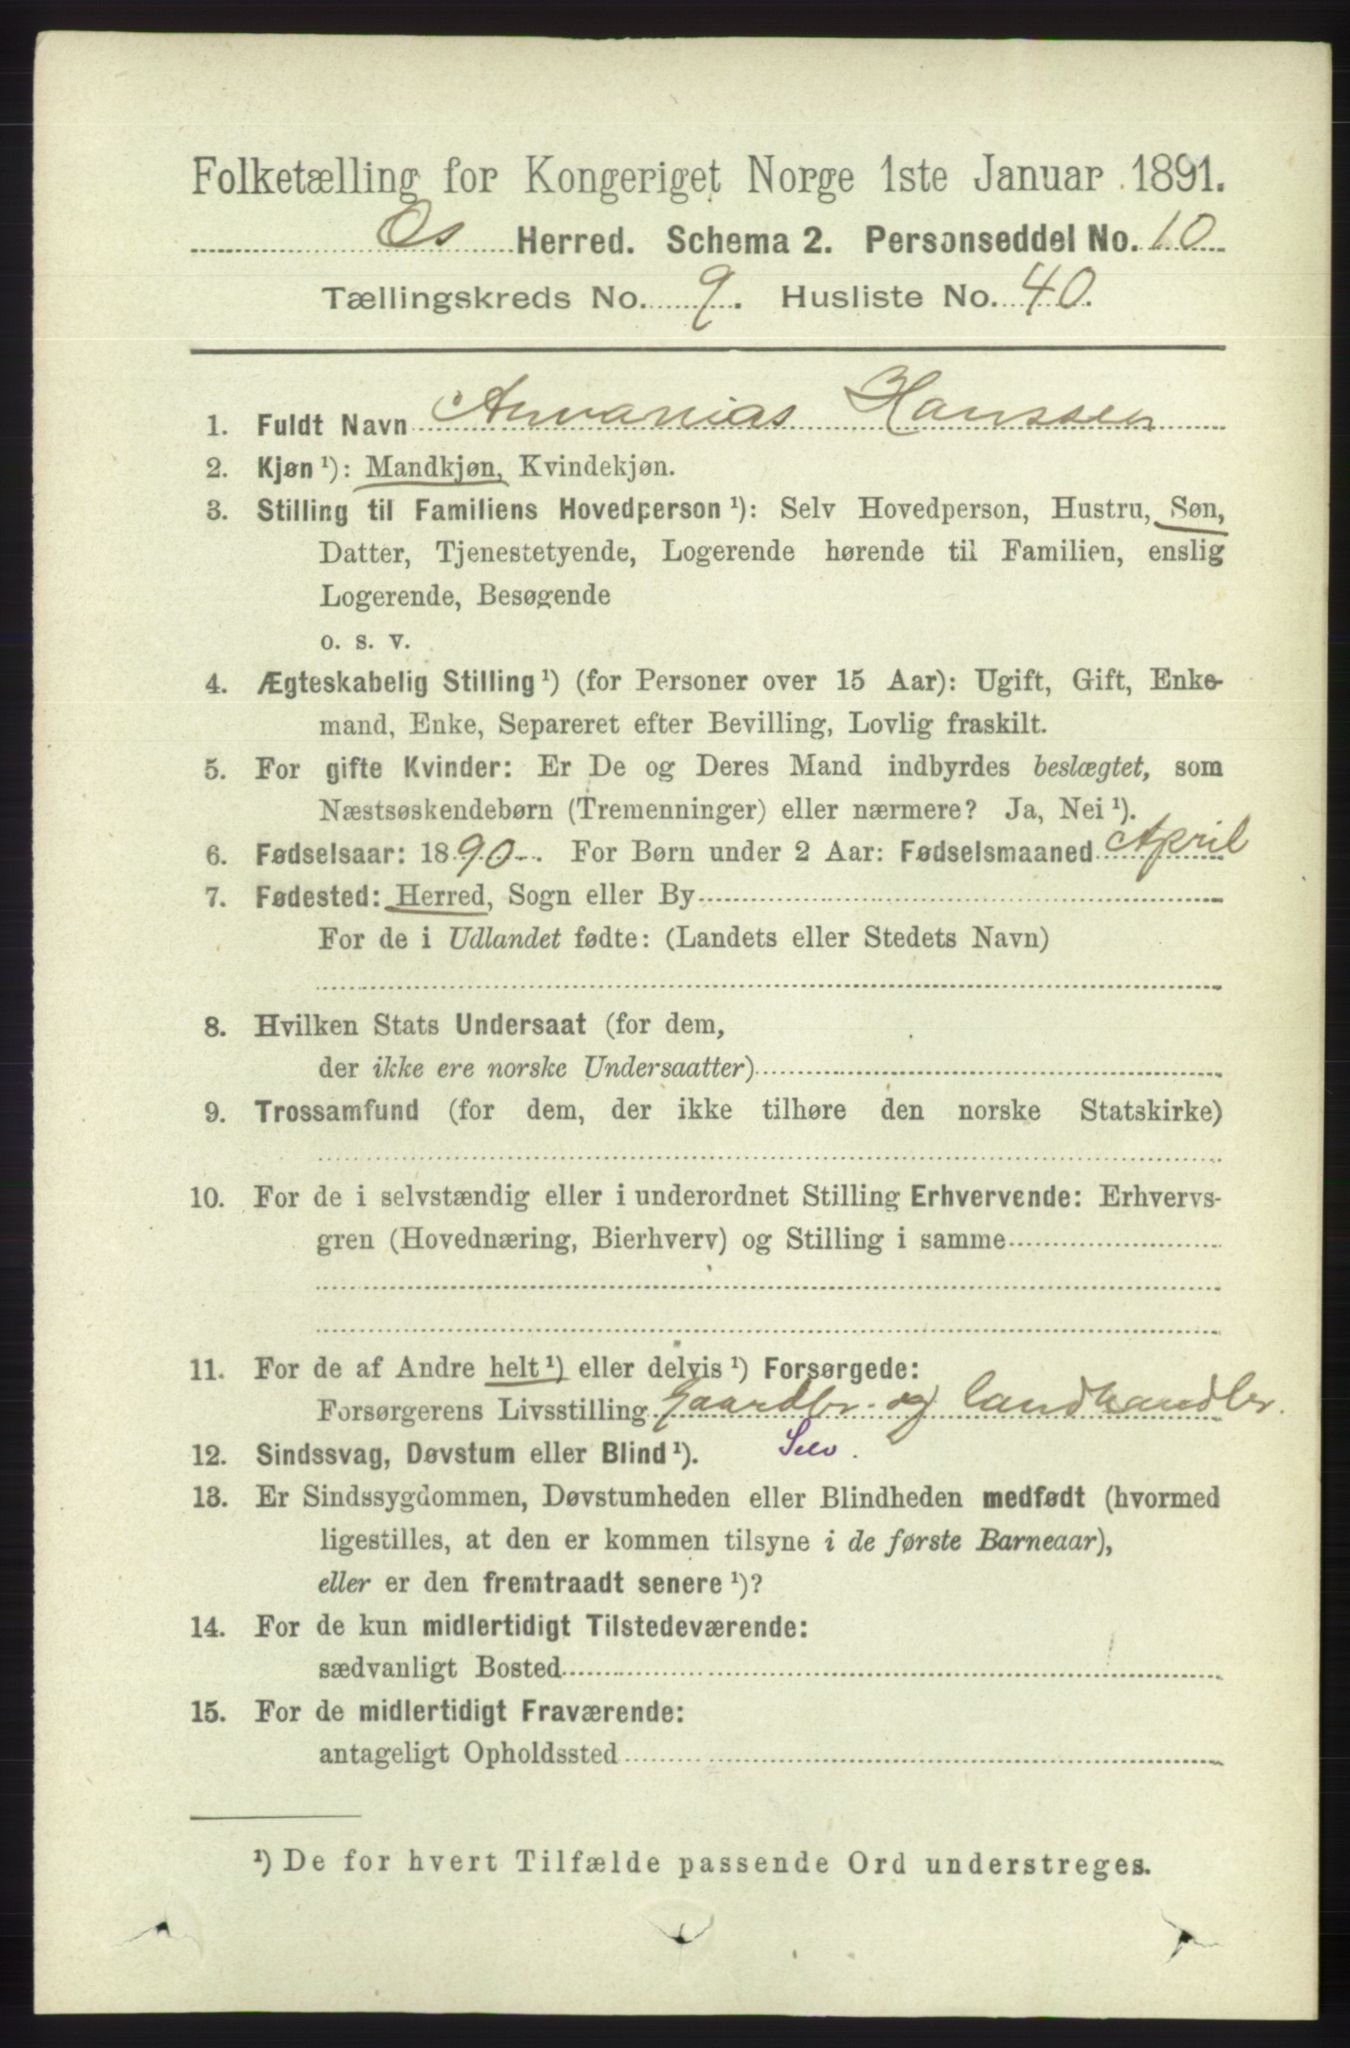 Folketælling for Kongeriget Norge 1ste Januar 1891.
Os Herred. Schema 2. Personseddel No. 10
Tællingskreds No. 9. Husliste No. 40.
1. Fuldt Navn Annanias Hanssen
2. Kjøn ¹): Mandkjøn, Kvindekjøn.
3. Stilling til Familiens Hovedperson ¹): Selv Hovedperson, Hustru, Søn,
Datter, Tjenestetyende, Logerende hørende til Familien, enslig
Logerende, Besøgende
o. s. v.
4. Ægteskabelig Stilling ¹) (for Personer over 15 Aar): Ugift, Gift, Enke-
mand, Enke, Separeret efter Bevilling, Lovlig fraskilt.
5. For gifte Kvinder: Er De og Deres Mand indbyrdes beslægtet, som
Næstsøskendebørn (Tremenninger) eller nærmere? Ja, Nei ¹).
6. Fødselsaar: 1890. For Børn under 2 Aar: Fødselsmaaned April
7. Fødested: Herred, Sogn eller By
For de i Udlandet fødte: (Landets eller Stedets Navn)
8. Hvilken Stats Undersaat (for dem,
der ikke ere norske Undersaatter)
9. Trossamfund (for dem, der ikke tilhøre den norske Statskirke)
10. For de i selvstændig eller i underordnet Stilling Erhvervende: Erhvervs-
gren (Hovednæring, Bierhverv) og Stilling i samme
11. For de af Andre helt ¹) eller delvis ¹) Forsørgede:
Forsørgerens Livsstilling Gaardbr. og landhandler.
12. Sindssvag, Døvstum eller Blind ¹). Selv.
13. Er Sindssygdommen, Døvstumheden eller Blindheden medfødt (hvormed
ligestilles, at den er kommen tilsyne i de første Barneaar),
eller er den fremtraadt senere ¹)?
14. For de kun midlertidigt Tilstedeværende:
sædvanligt Bosted
15. For de midlertidigt Fraværende:
antageligt Opholdssted
¹) De for hvert Tilfælde passende Ord understreges.